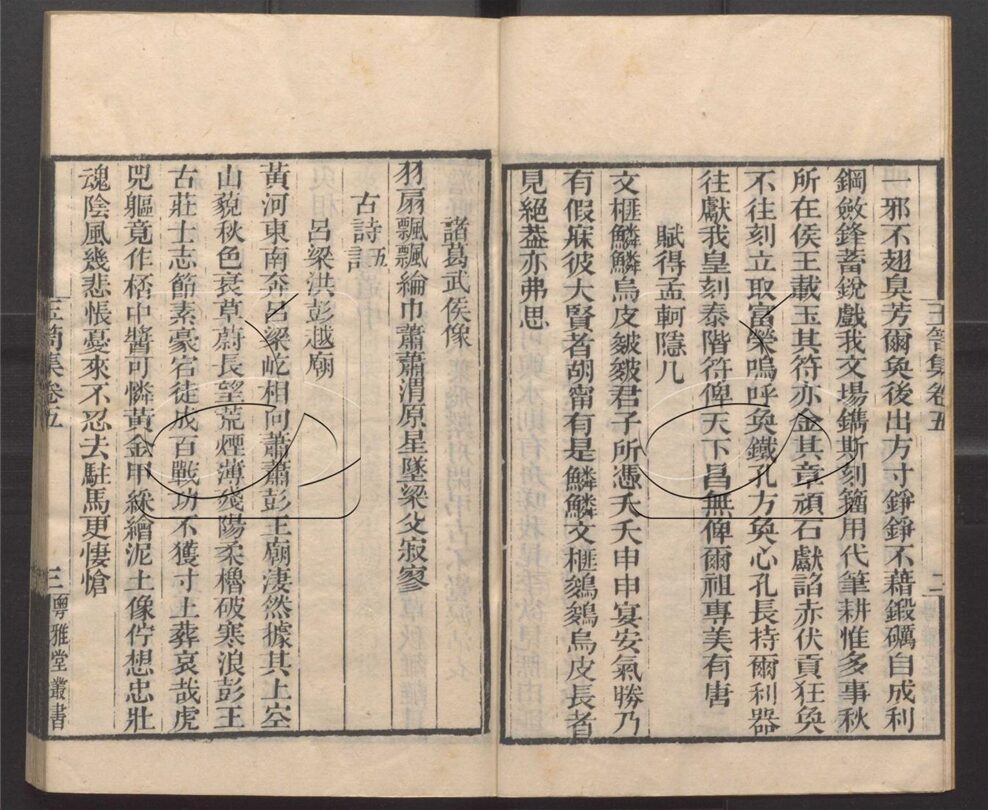 一邪不翅臭芳爾奐後出方寸錚錚不藉鍛礪自成利
鋼斂鋒蓄銳戲我文場鐫斯刻籀用代筆耕惟多事秋
所在侯王載玉其符亦金其章頑石獻諂赤伏貢狂奐
不往刻立取富榮嗚呼奐鐵孔方奐心孔長持爾利器
往獻我皇刻泰階符俾天下昌無俾爾祖專美有唐
賦得孟軻隱几
文榧鱗鱗烏皮皴皴君子所憑夭夭申申宴安氣勝乃
有假寐彼大賢者胡甯有是鱗鱗文榧鷄鷄烏皮長者
見絕葢亦弗思
玉笥集卷五
二
諸葛武侯像
羽扇飄飄綸巾蕭蕭渭原星墜梁父寂寥
古詩五言
呂梁洪彭越廟
黃河東南奔呂梁屹相向蕭蕭彭王廟淒然據其上空
山藐秋色衰草蔚長望荒煙薄殘陽柔櫓破寒浪彭王
古莊士志節素豪宕徒成百戰功不獲寸土葬哀哉虎
兕軀竟作梧中醬可憐黃金甲綵繪泥土像佇想忠壯
魂陰風幾悲悵憂來不忍去駐馬更悽愴
玉笥集卷五
三
粵雅堂叢書